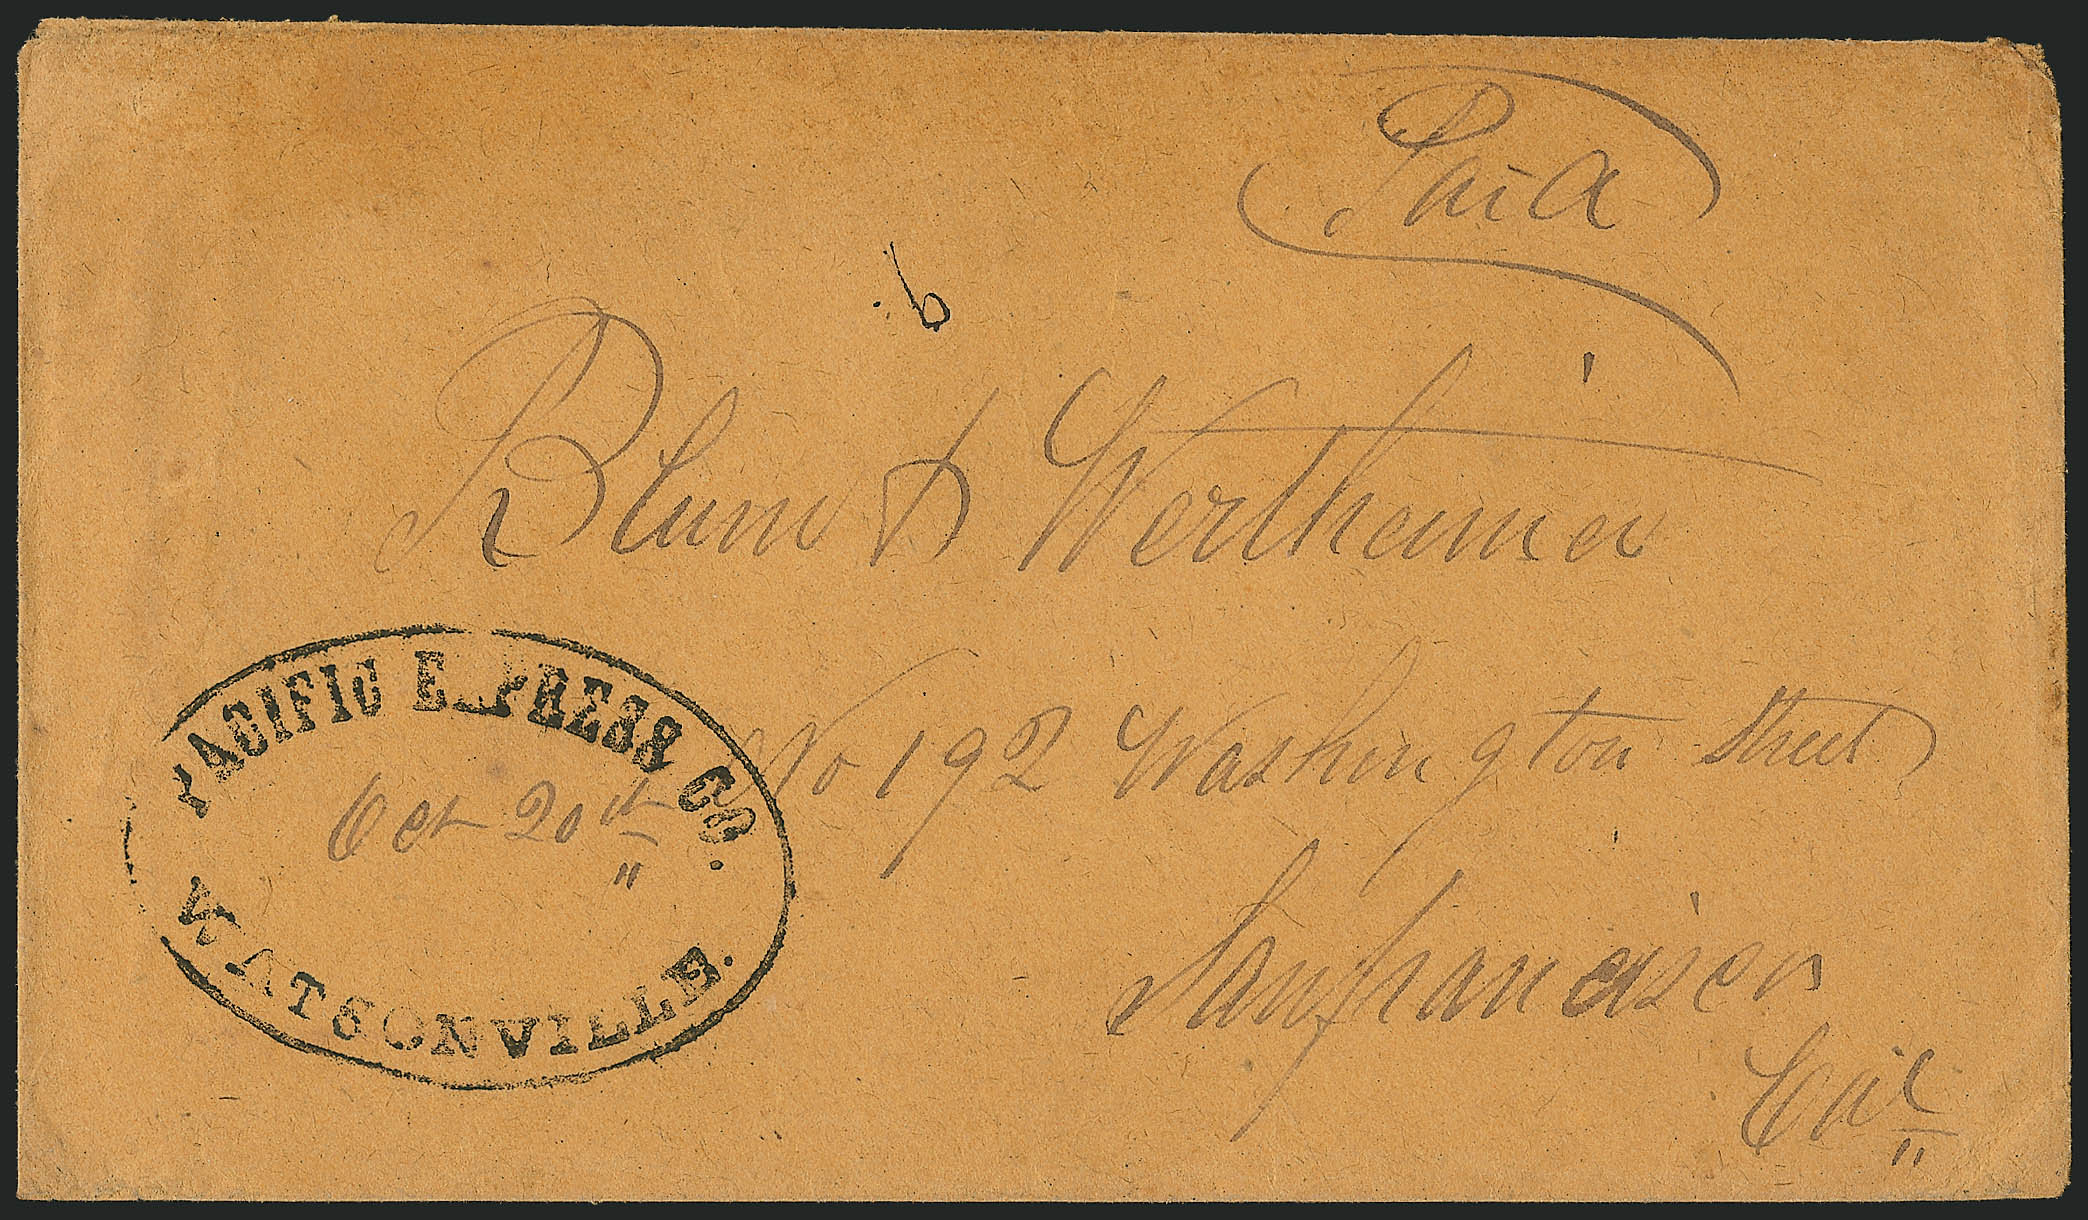 Paid
6
Blum & Wertheimer
PACIFIC EXPRESS CO.
Oct 20th
WATSONVILLE.
No 192 Washington Street
Sanfrancisco
Cal